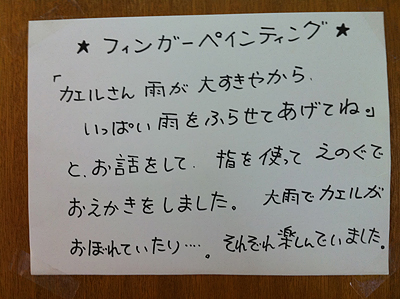 ★ フィンガーペインティング ★
「カエルさん 雨が 大すきやから、
いっぱい 雨を ふらせて あげてね。」
と、お話をして、指を使って えのぐで
おえかきをしました。 大雨で カエルが
おぼれていたり‥‥。それぞれ楽しんでいました。